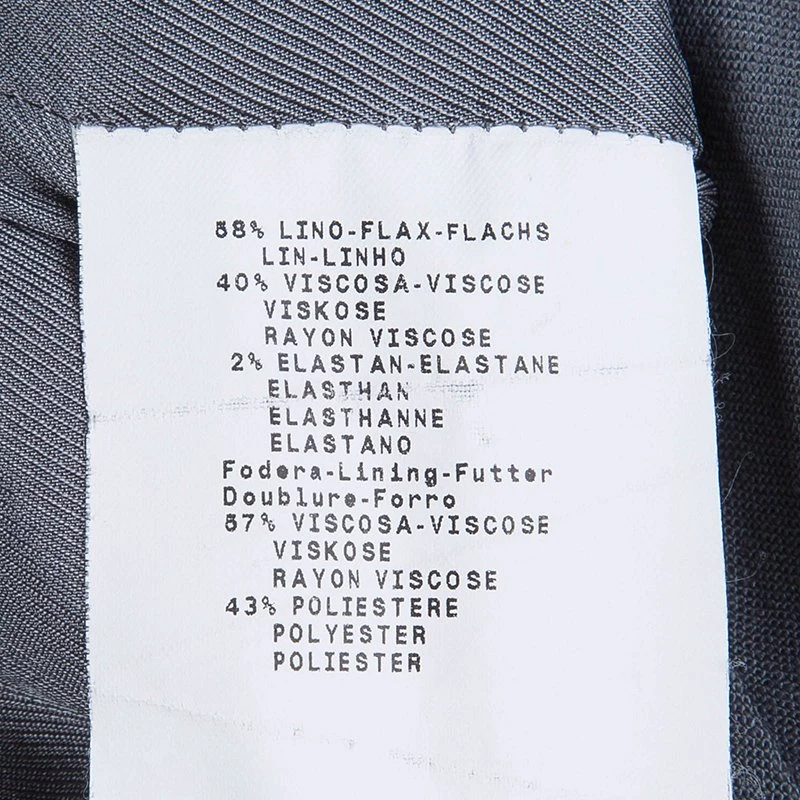 58% LINO-FLAX-FLACHS
LIN-LINHO
40% VISCOSA-VISCOSE
VISKOSE
RAYON VISCOSE
2% ELASTAN-ELASTANE
ELASTHAN
ELASTHANNE
ELASTANO
Fodera-Lining-Futter
Doublure-Forro
57% VISCOSA-VISCOSE
VISKOSE
RAYON VISCOSE
43% POLIESTERE
POLYESTER
POLIESTER